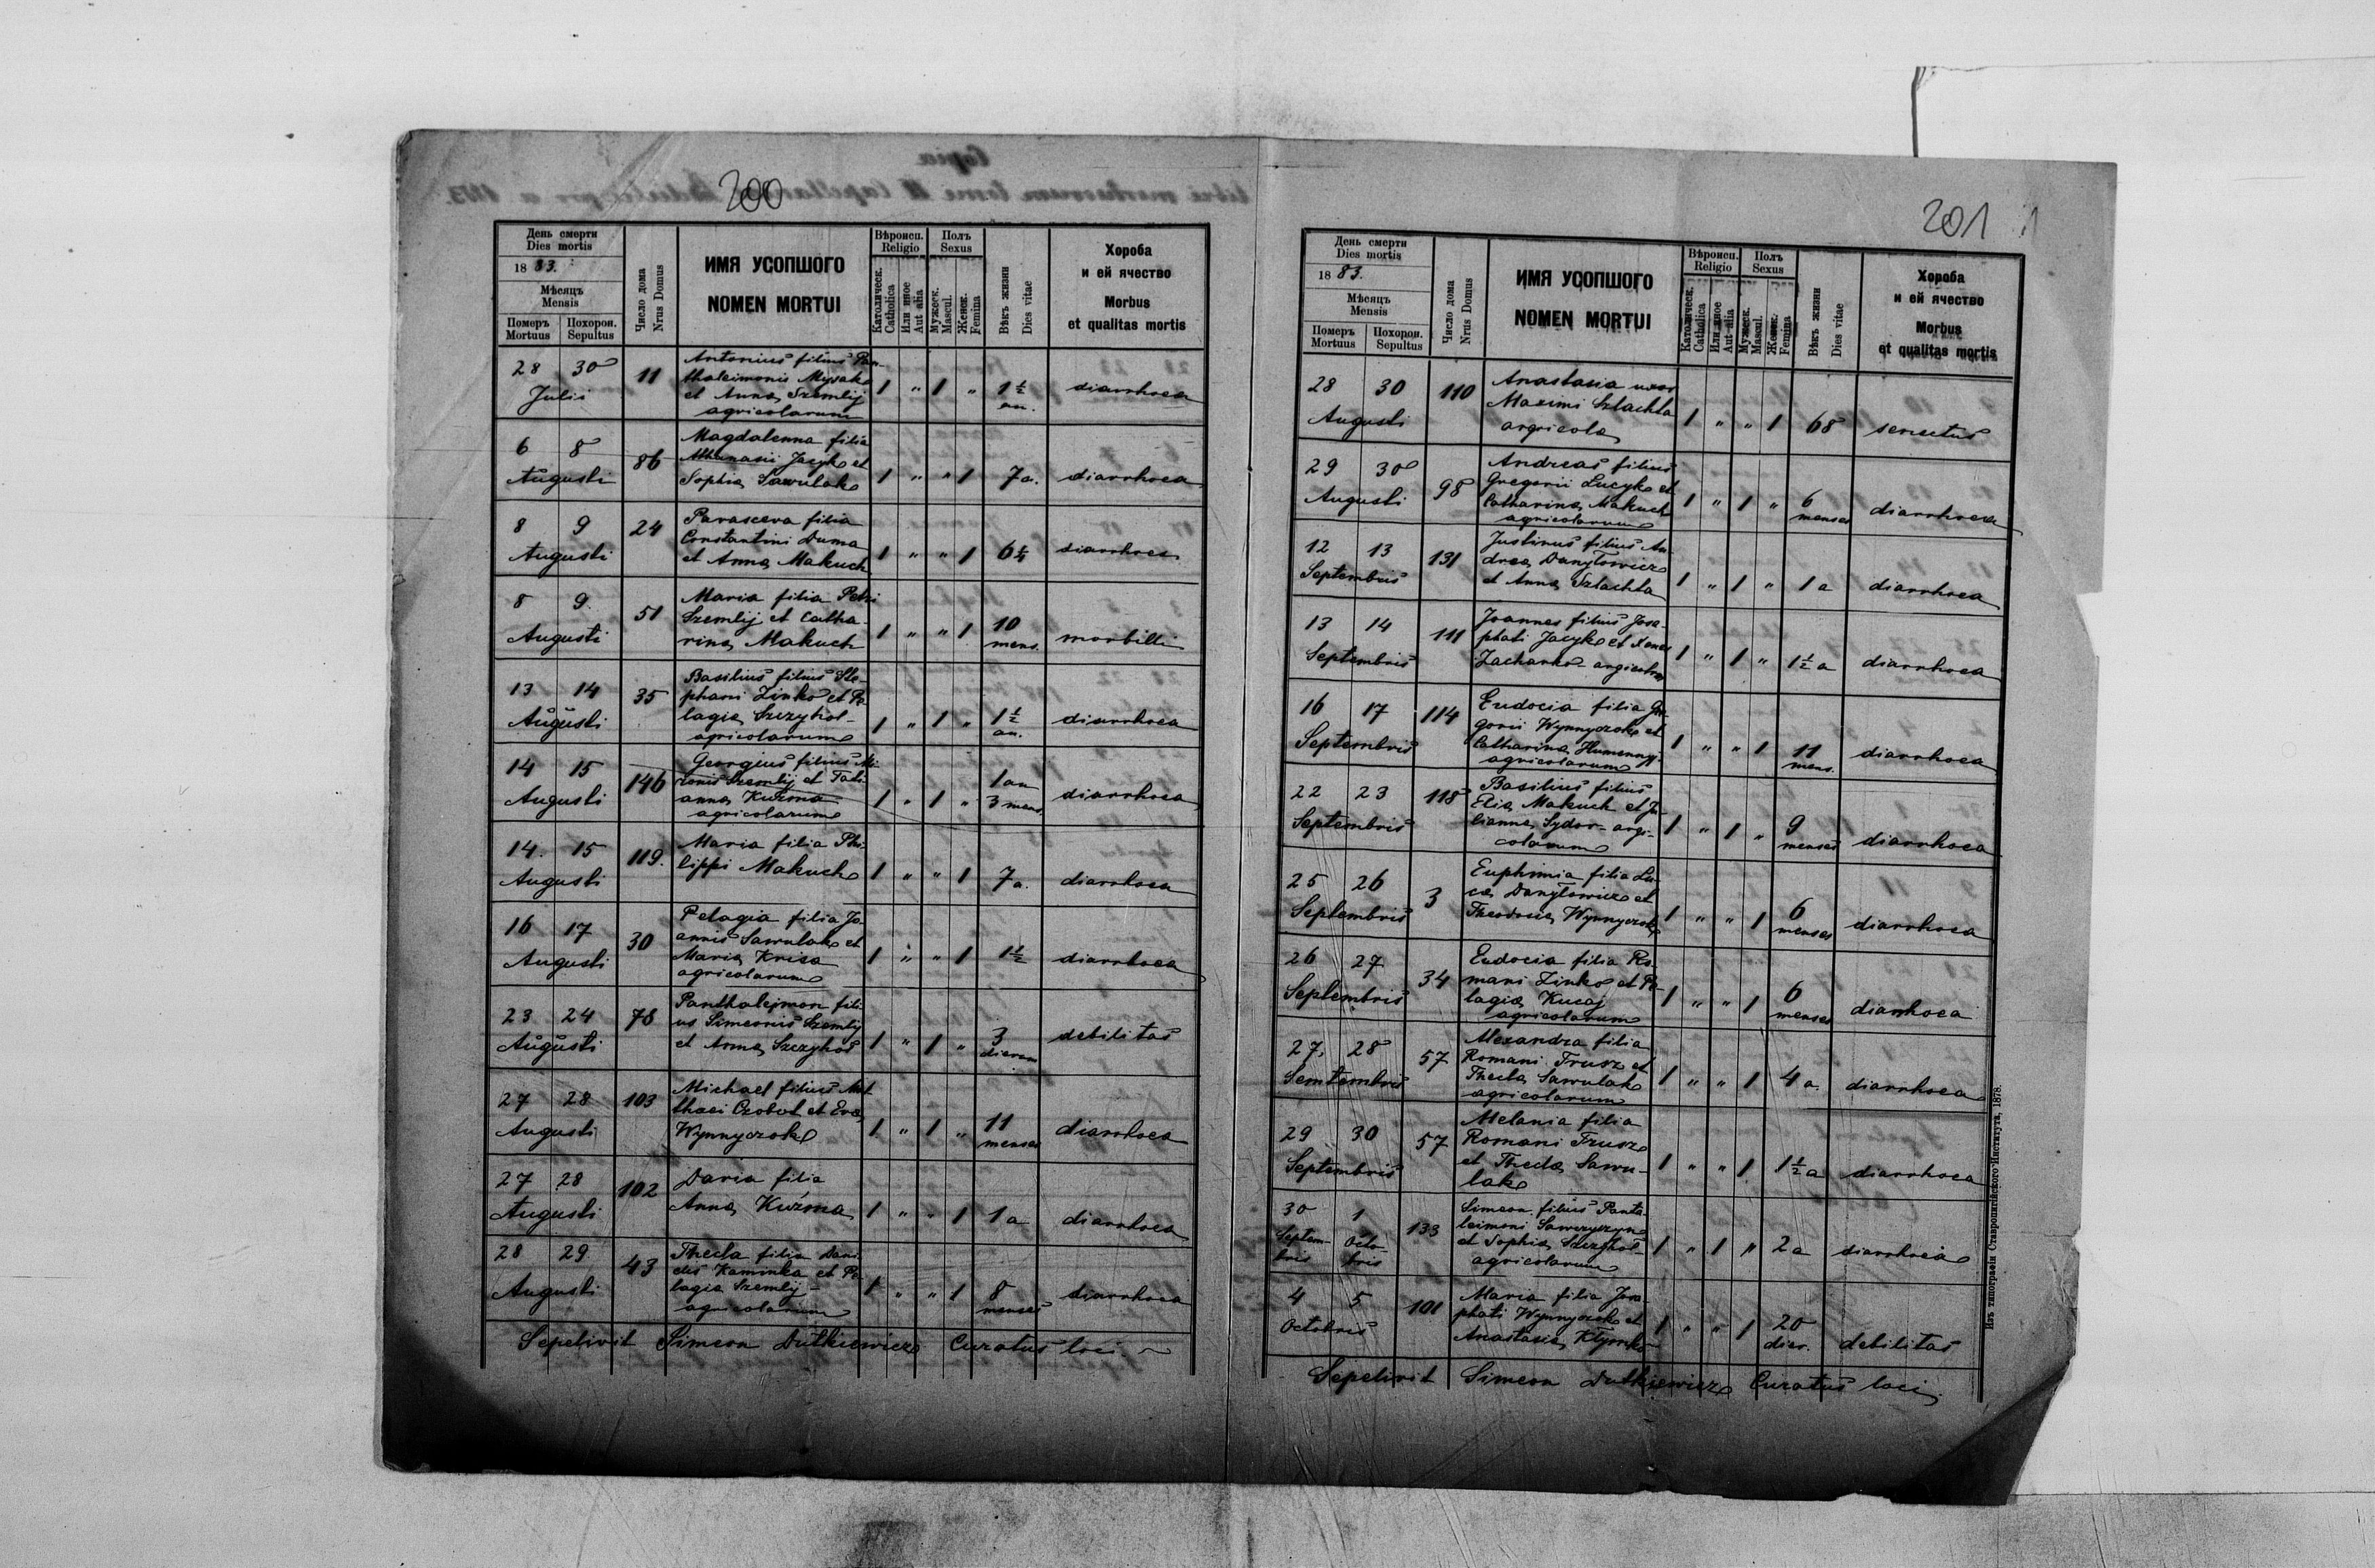 200
День смерти
Dies mortis
1883.
Мѣсяцъ
Mensis
Померъ Похорон.
Mortuus Sepultus
Число дома
Nrus Domus
ИМЯ УСОПШОГО
NOMEN MORTUI
Вѣроисп.
Religio
Католическ.
Catholica
Или иное
Aut alia
Полъ
Sexus
Мужеск.
Mascul.
Женск.
Femina
Вѣкъ жизни
Dies vitae
Хороба
и ей ячество
Morbus
et qualitas mortis
28 30 11 Antonius filius Pan-
Julii thaleimonis Mysak
et Anna Szemlij 1 " 1 " 1½ an. diarrhoea
agricolarum
6 8 86 Magdalenna filia
Augusti Athanasii Jacyk et
Sophia Sawulak 1 " " 1 7 a. diarrhoea
8 9 24 Parasceva filia
Augusti Constantini Duma
et Anna Makuch 1 " " 1 diarrhoea
8 9 51 Maria filia Petri
Augusti Szemlij et Catha-
rina Makuch 1 " " 1 10 mens. morbilli
13 14 35 Basilius filius Ste-
Augusti phani Zinko et Pe-
lagia Szczyhol- 1 " 1 " 1½ an. diarrhoea
agricolarum
14 15 146 Georgius filius Mi-
Augusti ronis Szemlij et Tati-
anna Kuźma 1 " 1 " 1 an 3 mens. diarrhoea
agricolarum
14. 15 119. Maria filia Phi-
Augusti lippi Makuch 1 " " 1 7 a. diarrhoea
16 17 30 Pelagia filia Jo-
Augusti annis Sawulak et
Maria Krisa 1 " " 1 1½ diarrhoea
agricolarum
23 24 78 Panthalejmon fili-
Augusti us Simeonis Szemlij
et Anna Szczyhol 1 " 1 " 3 dierum debilitas
27 28 103 Michael filius Mat-
Augusti thaei Czobot et Eva
Wynnyczok 1 " 1 " 11 menses diarrhoea
27 28 102 Daria filia
Augusti Anna Kuźma 1 " " 1 1 a diarrhoea
28 29 43 Thecla filia Dani-
Augusti elis Kaminka et Pe-
lagia Szemlij- 1 " " 1 8 menses diarrhoea
agricolarum
Sepelivit Simeon Dutkiewicz Curatus loci
201
День смерти
Dies mortis
1883.
Мѣсяцъ
Mensis
Померъ Похорон.
Mortuus Sepultus
Число дома
Nrus Domus
ИМЯ УСОПШОГО
NOMEN MORTUI
Вѣроисп.
Religio
Католическ.
Catholica
Или иное
Aut alia
Полъ
Sexus
Мужеск.
Mascul.
Женск.
Femina
Вѣкъ жизни
Dies vitae
Хороба
и ей ячество
Morbus
et qualitas mortis
28 30 110 Anastasia uxor
Augusti Maximi Szlachta
argricola 1 " " 1 68 senectus
29 30 98 Andreas filius
Augusti Gregorii Lucyk et
Catharina Makuch 1 " 1 " 6 menses diarrhoea
agricolarum
12 13 131 Justinus filius An-
Septembris drea Danyłowicz
et Anna Szlachta 1 " 1 " 1 a diarrhoea
13 14 111 Joannes filius Josa-
Septembris phati Jacyk et Xenes
Zacharko 1 " 1 " 1½ a diarrhoea
16 17 114 Eudocia filia Gre-
Septembris gorii Wynnyczok et
Catharina Humennyj- 1 " " 1 11 mens. diarrhoea
agricolarum
22 23 118 Basilius filius
Septembris Elia Makuch et Ju-
lianna Sydor- argi- 1 " 1 " 9 menses diarrhoea
colarum
25 26 3 Euphimia filia Lu-
Septembris ca Danyłowicz et
Theodosia Wynnyczok 1 " " 1 6 menses diarrhoea
26 27 34 Eudocia filia Ro-
Septembris mani Zinko et Pe-
lagia Kucaj 1 " " 1 6 menses diarrhoea
agricolarum
27. 28 57 Alexandra filia
Semtembris Romani Trusz et
Thecla Sawulak 1 " " 1 4 a. diarrhoea
agricolarum
29 30 57 Melania filia
Septembris Romani Trusz
et Thecla Sawu- 1 " " 1 1½ a diarrhoea
lak
30 1 133 Simeon filius Panta-
Septem- Octo- leimoni Sawczyczyn
bris bris et Sophia Szczyhol- 1 " 1 " 2 a diarrhoea
agricolarum
4 5 101 Maria filia Josa-
Octobris phati Wynnyczok et
Anastasia Kłymko 1 " " 1 20 dier. debilitas
Sepelivit Simeon Dutkiewicz Curatus loci.
Изъ типографіи Ставропигійского Института, 1878.